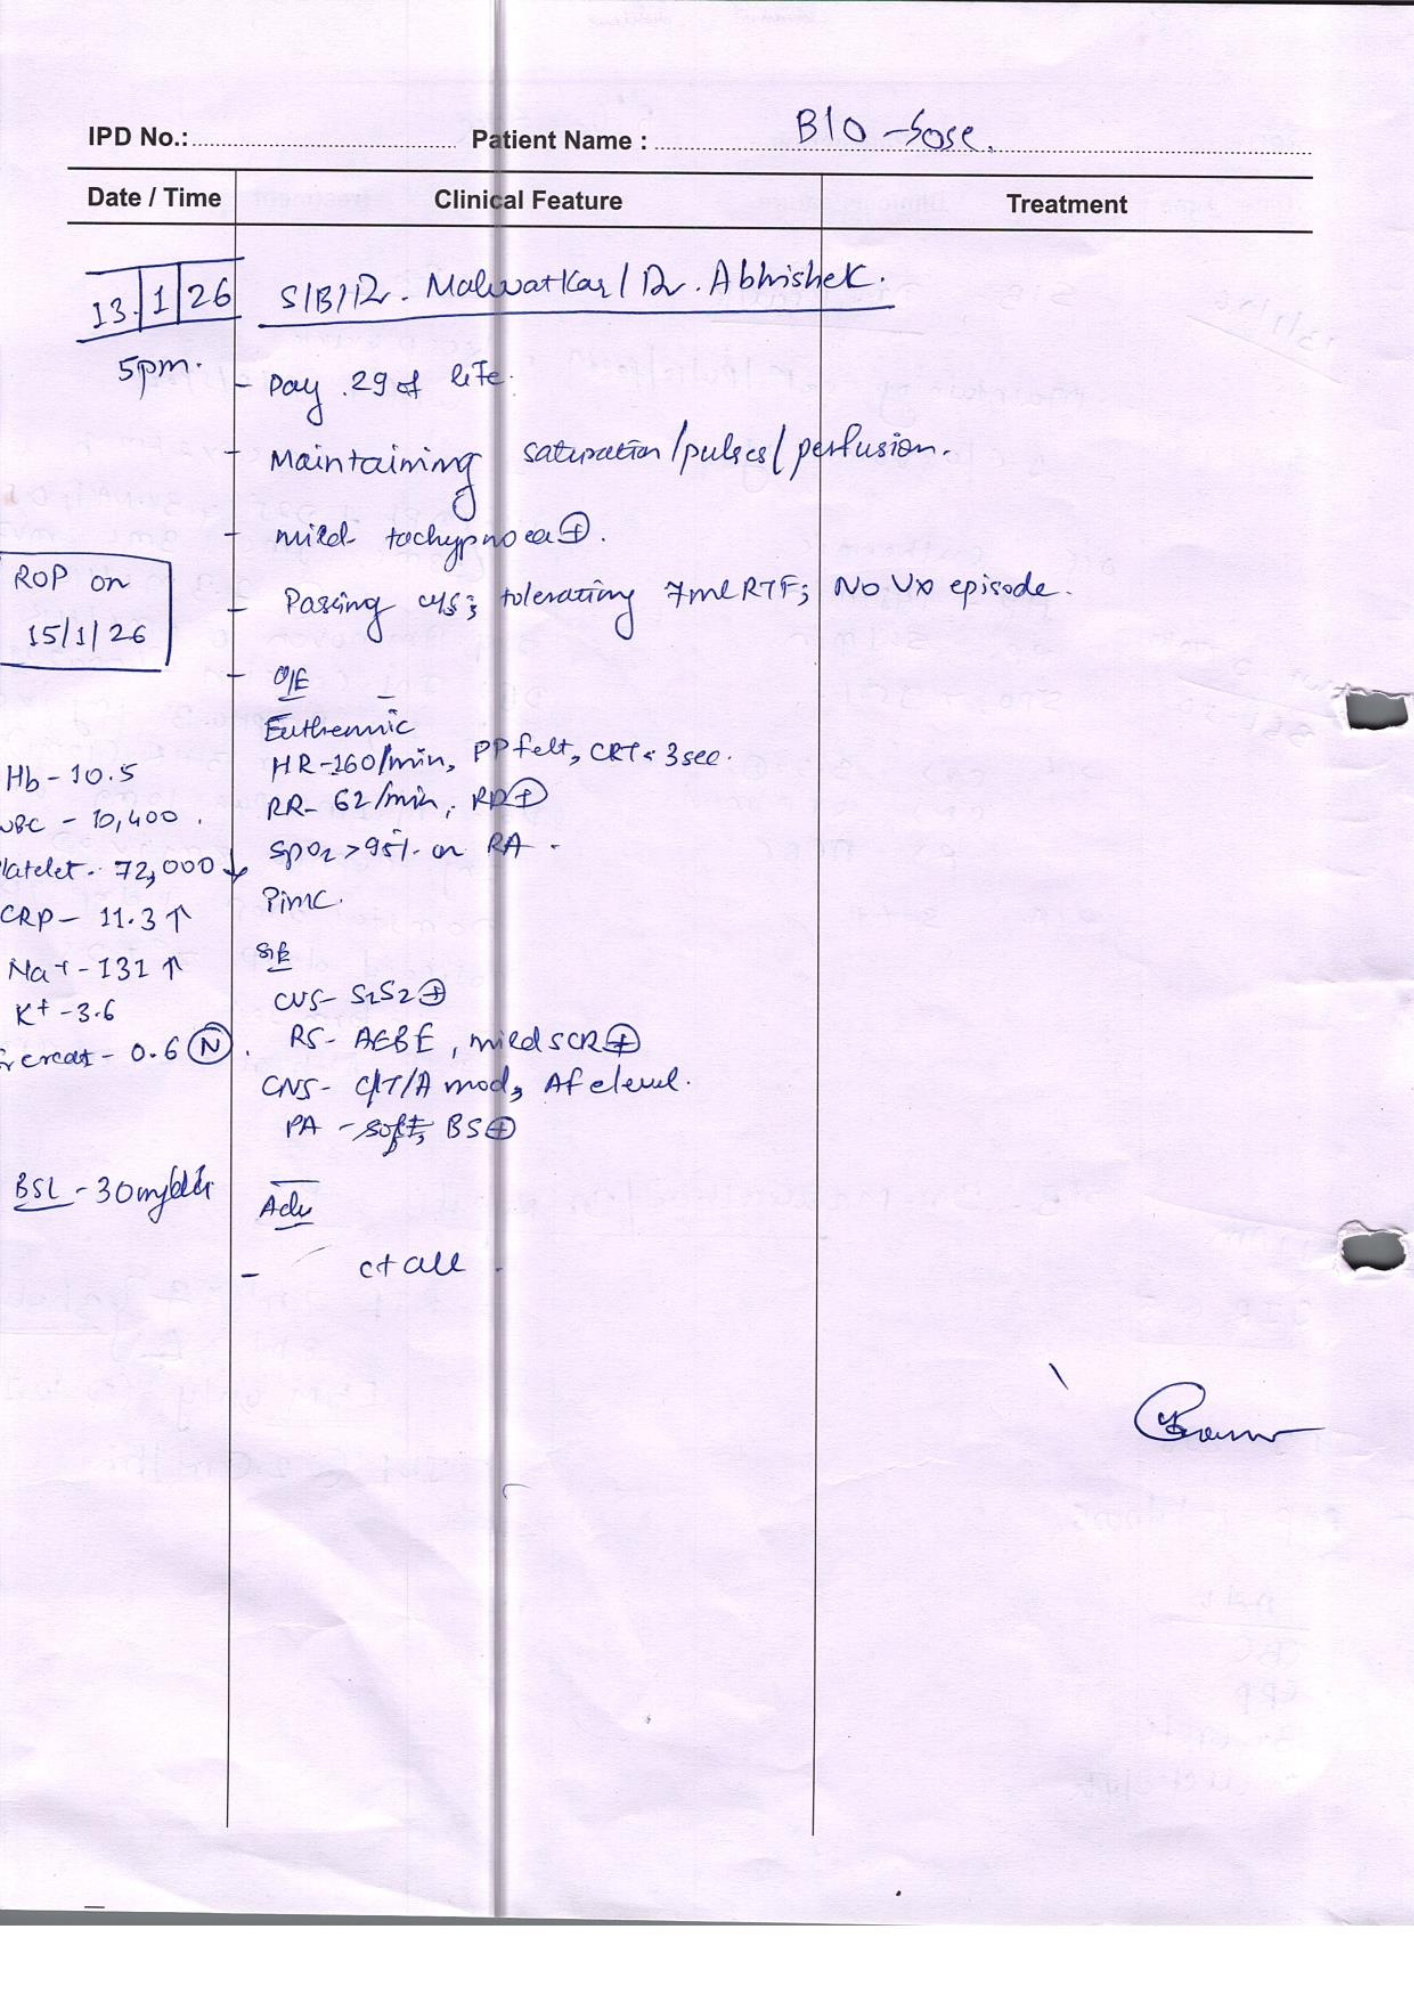 IPD No.: Patient Name : B/O - Sose.
Date / Time Clinical Feature Treatment
13.|1|26 S/B/Dr. Malwatkar / Dr. Abhishek.
5pm. - Day . 29 of life.
- Maintaining saturation/pulses/perfusion.
- mild tachypnoea ⊕.
ROP on
15/1/26
- Passing u/s; tolerating 7ml RTF; No Vx episode.
- O/E
Euthermic
HR-160/min, PP felt, CRT < 3sec.
RR- 62/min, RD ⊕
SpO2 >95% on RA .
Pimc.
S/E
CVS- S1S2 ⊕
RS- AEBE, mild SCR ⊕
CNS- C/T/A mod, AF @ level.
PA - soft, BS ⊕
Hb - 10.5
WBC - 10,400 .
Platelet - 72,000 ↓
CRP - 11.3 ↑
Na+ - 131 ↑
K+ - 3.6
Sr creat - 0.6 (N).
BSL - 30mg/dl
Adv
- ct all .